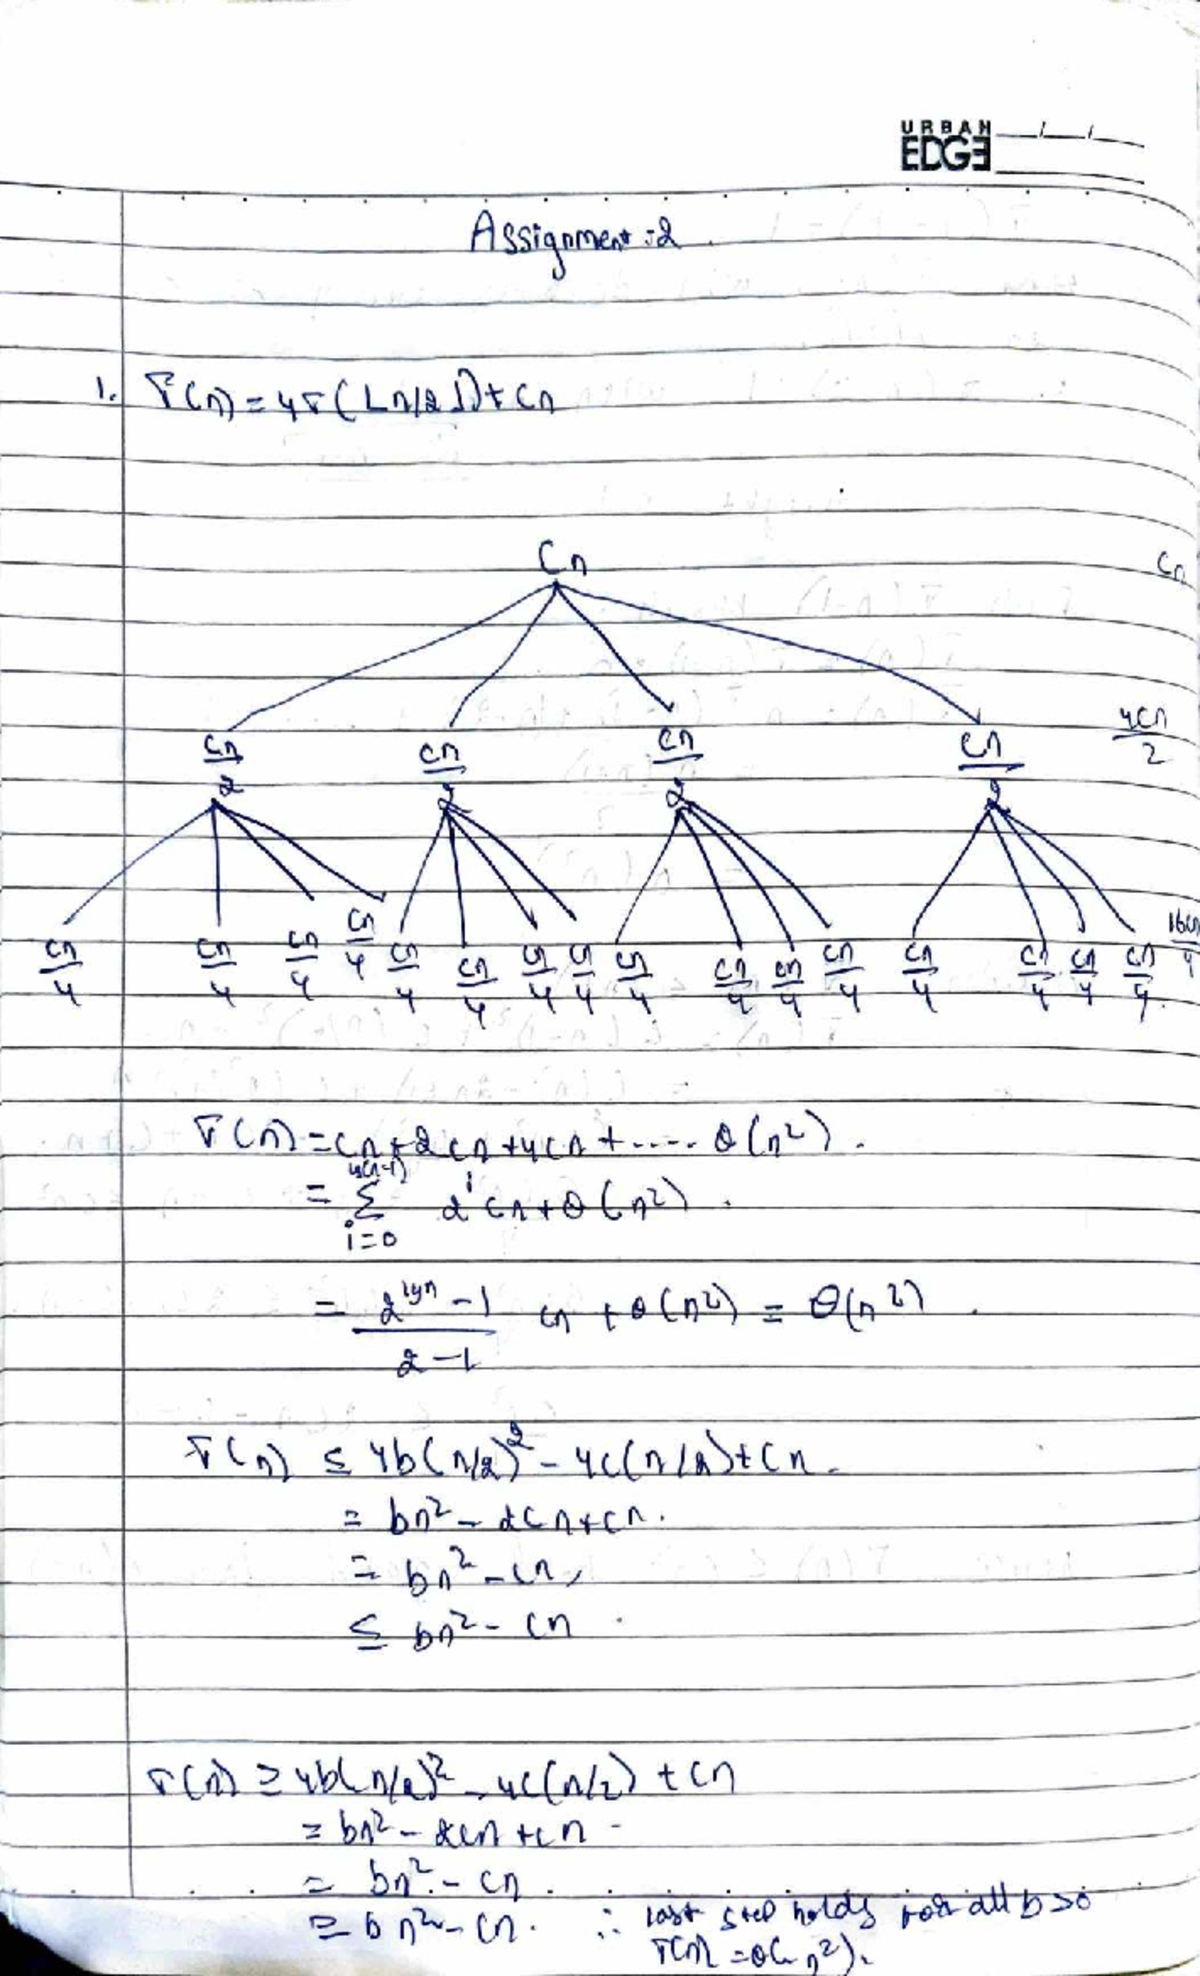 URBAN
EDGE
Assignment :2
1. T(n) = 4T(⌊n/2⌋) + cn
cn cn
cn/2 cn/2 cn/2 cn/2 4cn/2
cn/4 cn/4 cn/4 cn/4 cn/4 cn/4 cn/4 cn/4 cn/4 cn/4 cn/4 cn/4 cn/4 cn/4 cn/4 cn/4 16cn/4
T(n) = cn + 2cn + 4cn + ..... θ(n²).
= Σ i=0 2^i cn + θ(n²).
= (2^lgn - 1)/(2-1) cn + θ(n²) = θ(n²).
T(n) ≤ 4b(n/2)² - 4c(n/2) + cn.
= bn² - 2cn + cn.
= bn² - cn,
≤ bn² - cn.
T(n) ≥ 4b(n/2)² - 4c(n/2) + cn
= bn² - 2cn + cn -
= bn² - cn.
≥ bn² - cn. ∴ last step holds for all b>0
T(n) = θ(n²).